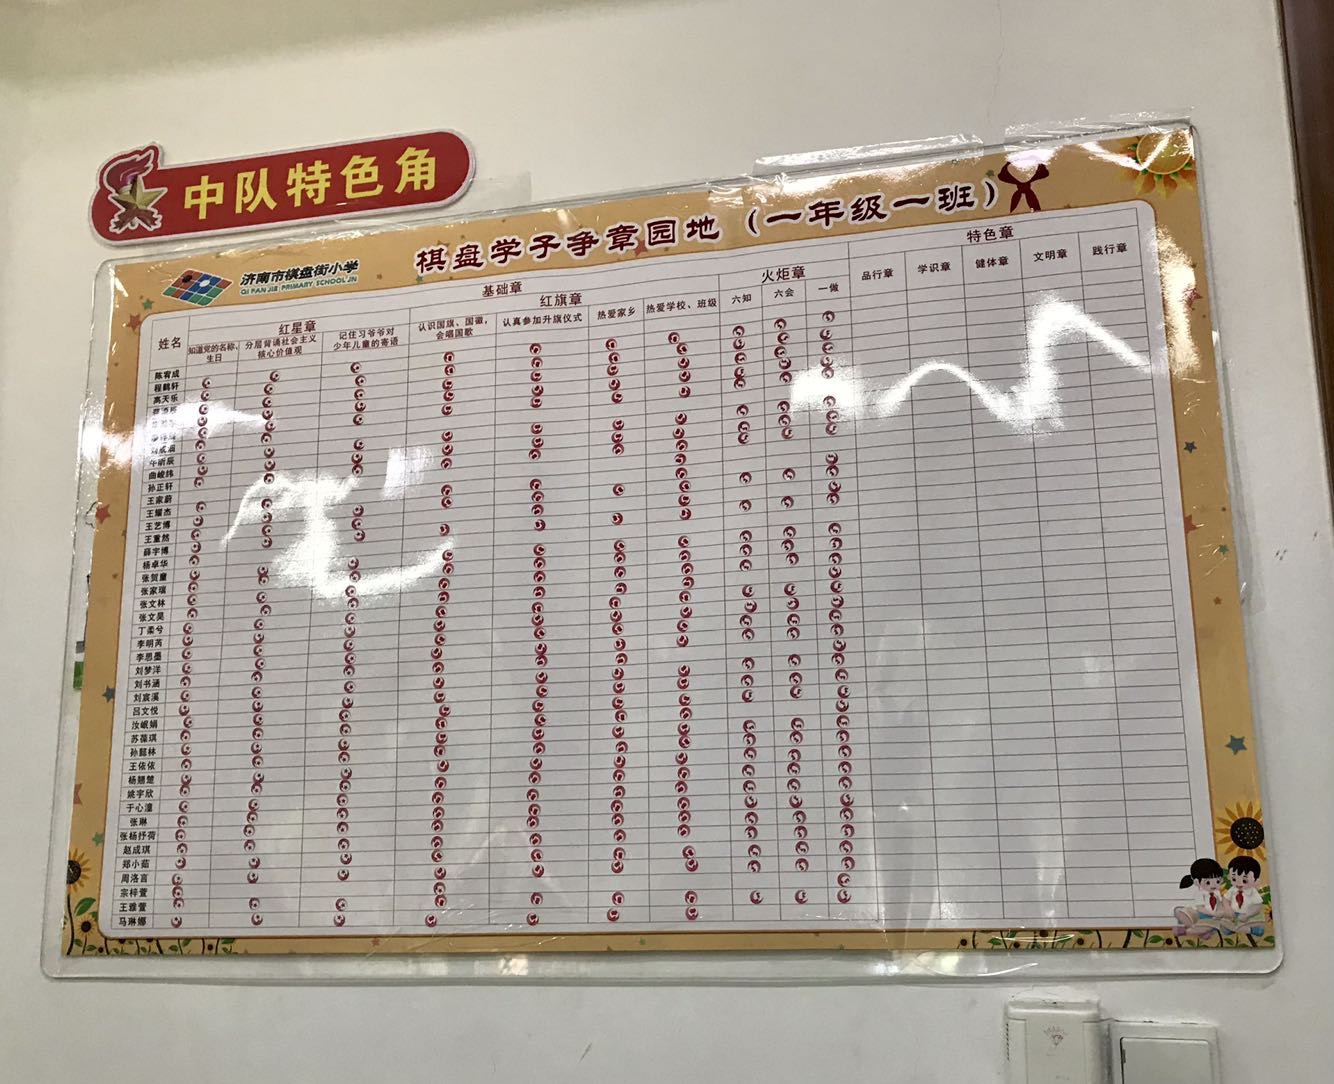 中队特色角
棋盘学子争章园地（一年级一班）
济南市棋盘街小学
QI PAN JIE PRIMARY SCHOOL JN
姓名
基础章
特色章
红星章
红旗章
火炬章
品行章
学识章
健体章
文明章
践行章
知道党的名称、
生日
分层背诵社会主义
核心价值观
记住习爷爷对
少年儿童的寄语
认识国旗、国徽，
会唱国歌
认真参加升旗仪式
热爱家乡
热爱学校、班级
六知
六会
一做
陈宥成
程鹤轩
高天乐
曲峻纬
孙正轩
王家蔚
王耀杰
王艺博
王重然
薛宇博
杨卓华
张贺童
张家瑞
张文林
张文昊
丁柔兮
李明芮
李思墨
刘梦洋
刘书涵
刘宸溪
吕文悦
汝岷娟
苏葆琪
孙懿林
王依依
杨翘楚
姚宇欣
于心潼
张琳
张杨抒荷
赵成琪
郑小茹
周洛言
宗梓萱
王雅萱
马琳娜